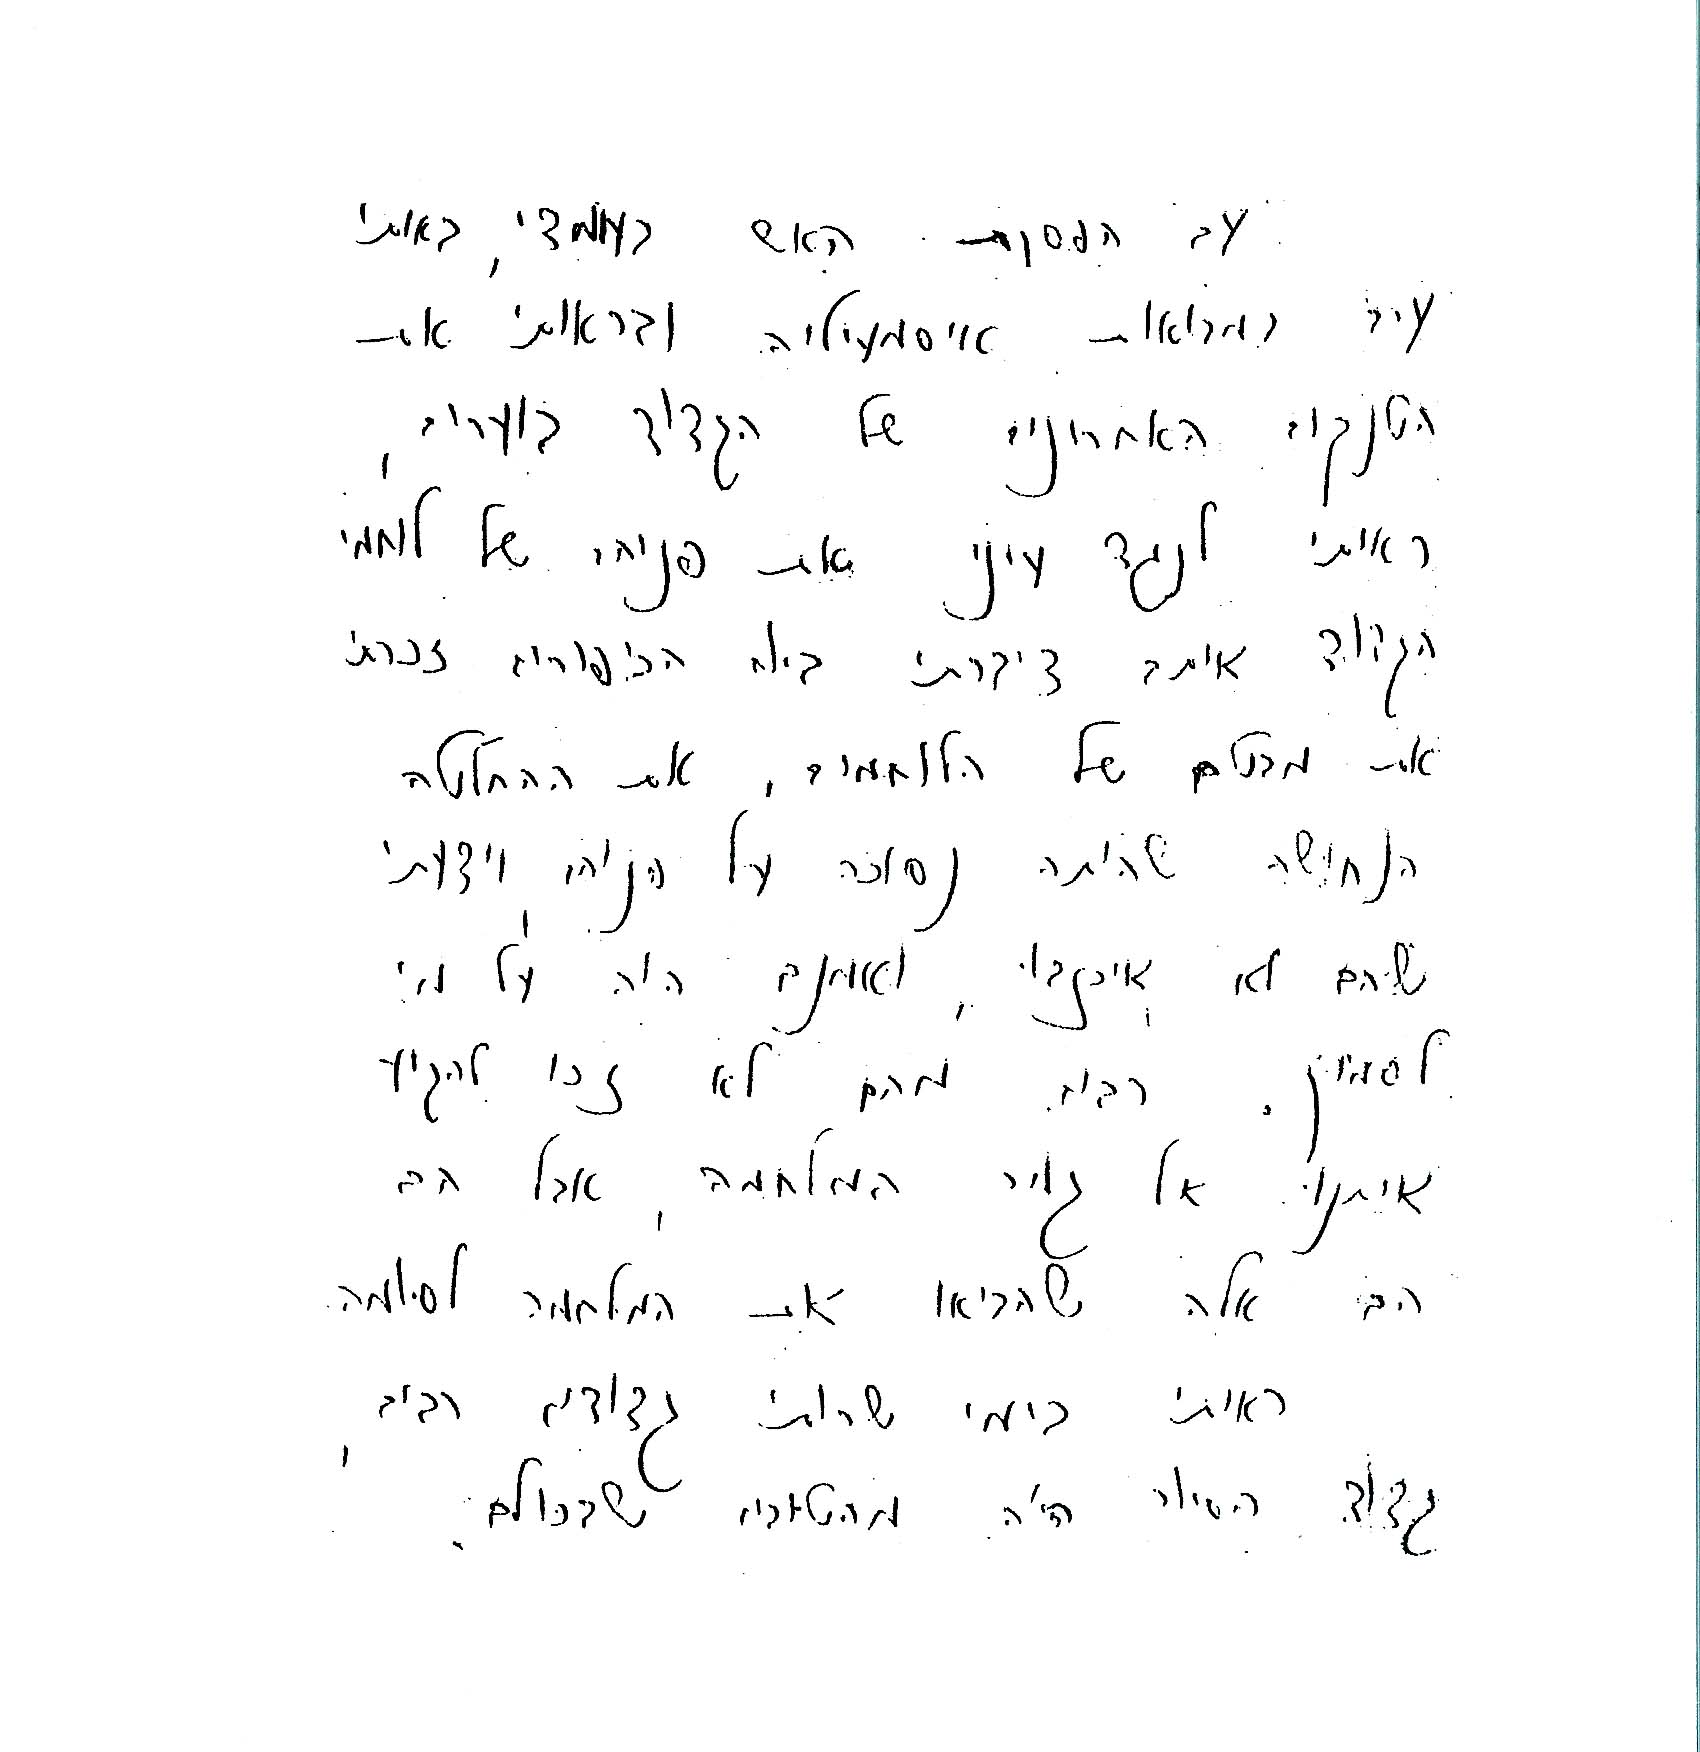 עם הפסקת האש בעומדי, באותי
עיר במבואות איסמעיליה ובראותי את
הטנקים האחרונים של הגדוד בוערים,
ראיתי לנגד עיני את פניהם של לוחמי
הגדוד איתם דיברתי ביום הכיפורים זכרתי
את מבטם של הלוחמים, את ההחלטה
הנחושה שהיתה נסוכה על פניהם, וידעתי
שהם לא איכזבו, ואמנם היה על מי
לסמוך. רבים מהם לא זכו להגיע
איתנו אל גמר המלחמה, אבל הם
הם אלה שהביאו את המלחמה לסיומה
ראיתי בימי שרותי גדודים רבים,
גדוד הסיור היה מהטובים שבכולם.